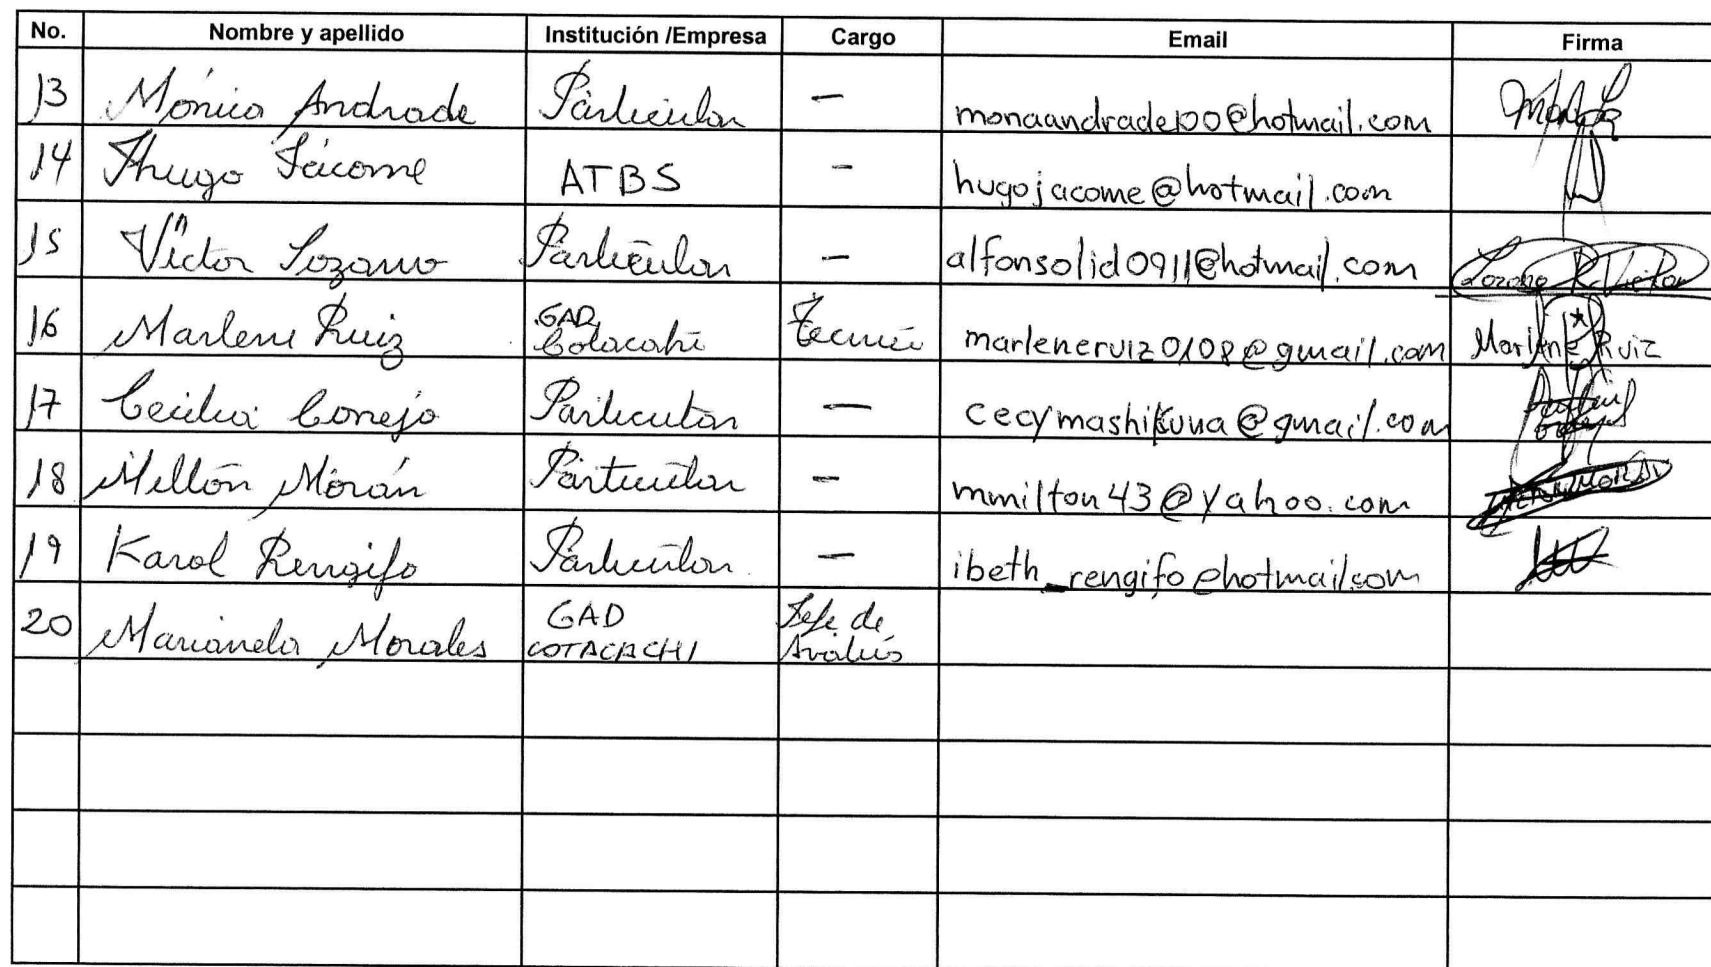 No. Nombre y apellido Institución /Empresa Cargo Email Firma
13 Mónica Andrade Particular — monaandrade100@hotmail.com
14 Hugo Jácome ATBS — hugojacome@hotmail.com
15 Víctor Lozano Particular — alfonsolid0911@hotmail.com Lozano R. Victor
16 Marlene Ruiz GAD Cotacachi Técnico marleneruiz0108@gmail.com Marlene Ruiz
17 Cecilia Conejo Particular — cecymashikuna@gmail.com
18 Milton Morán Particular — mmilton43@yahoo.com
19 Karol Rengifo Particular — ibeth_rengifo@hotmail.com
20 Marianela Morales GAD COTACACHI Jefe de Avalúos